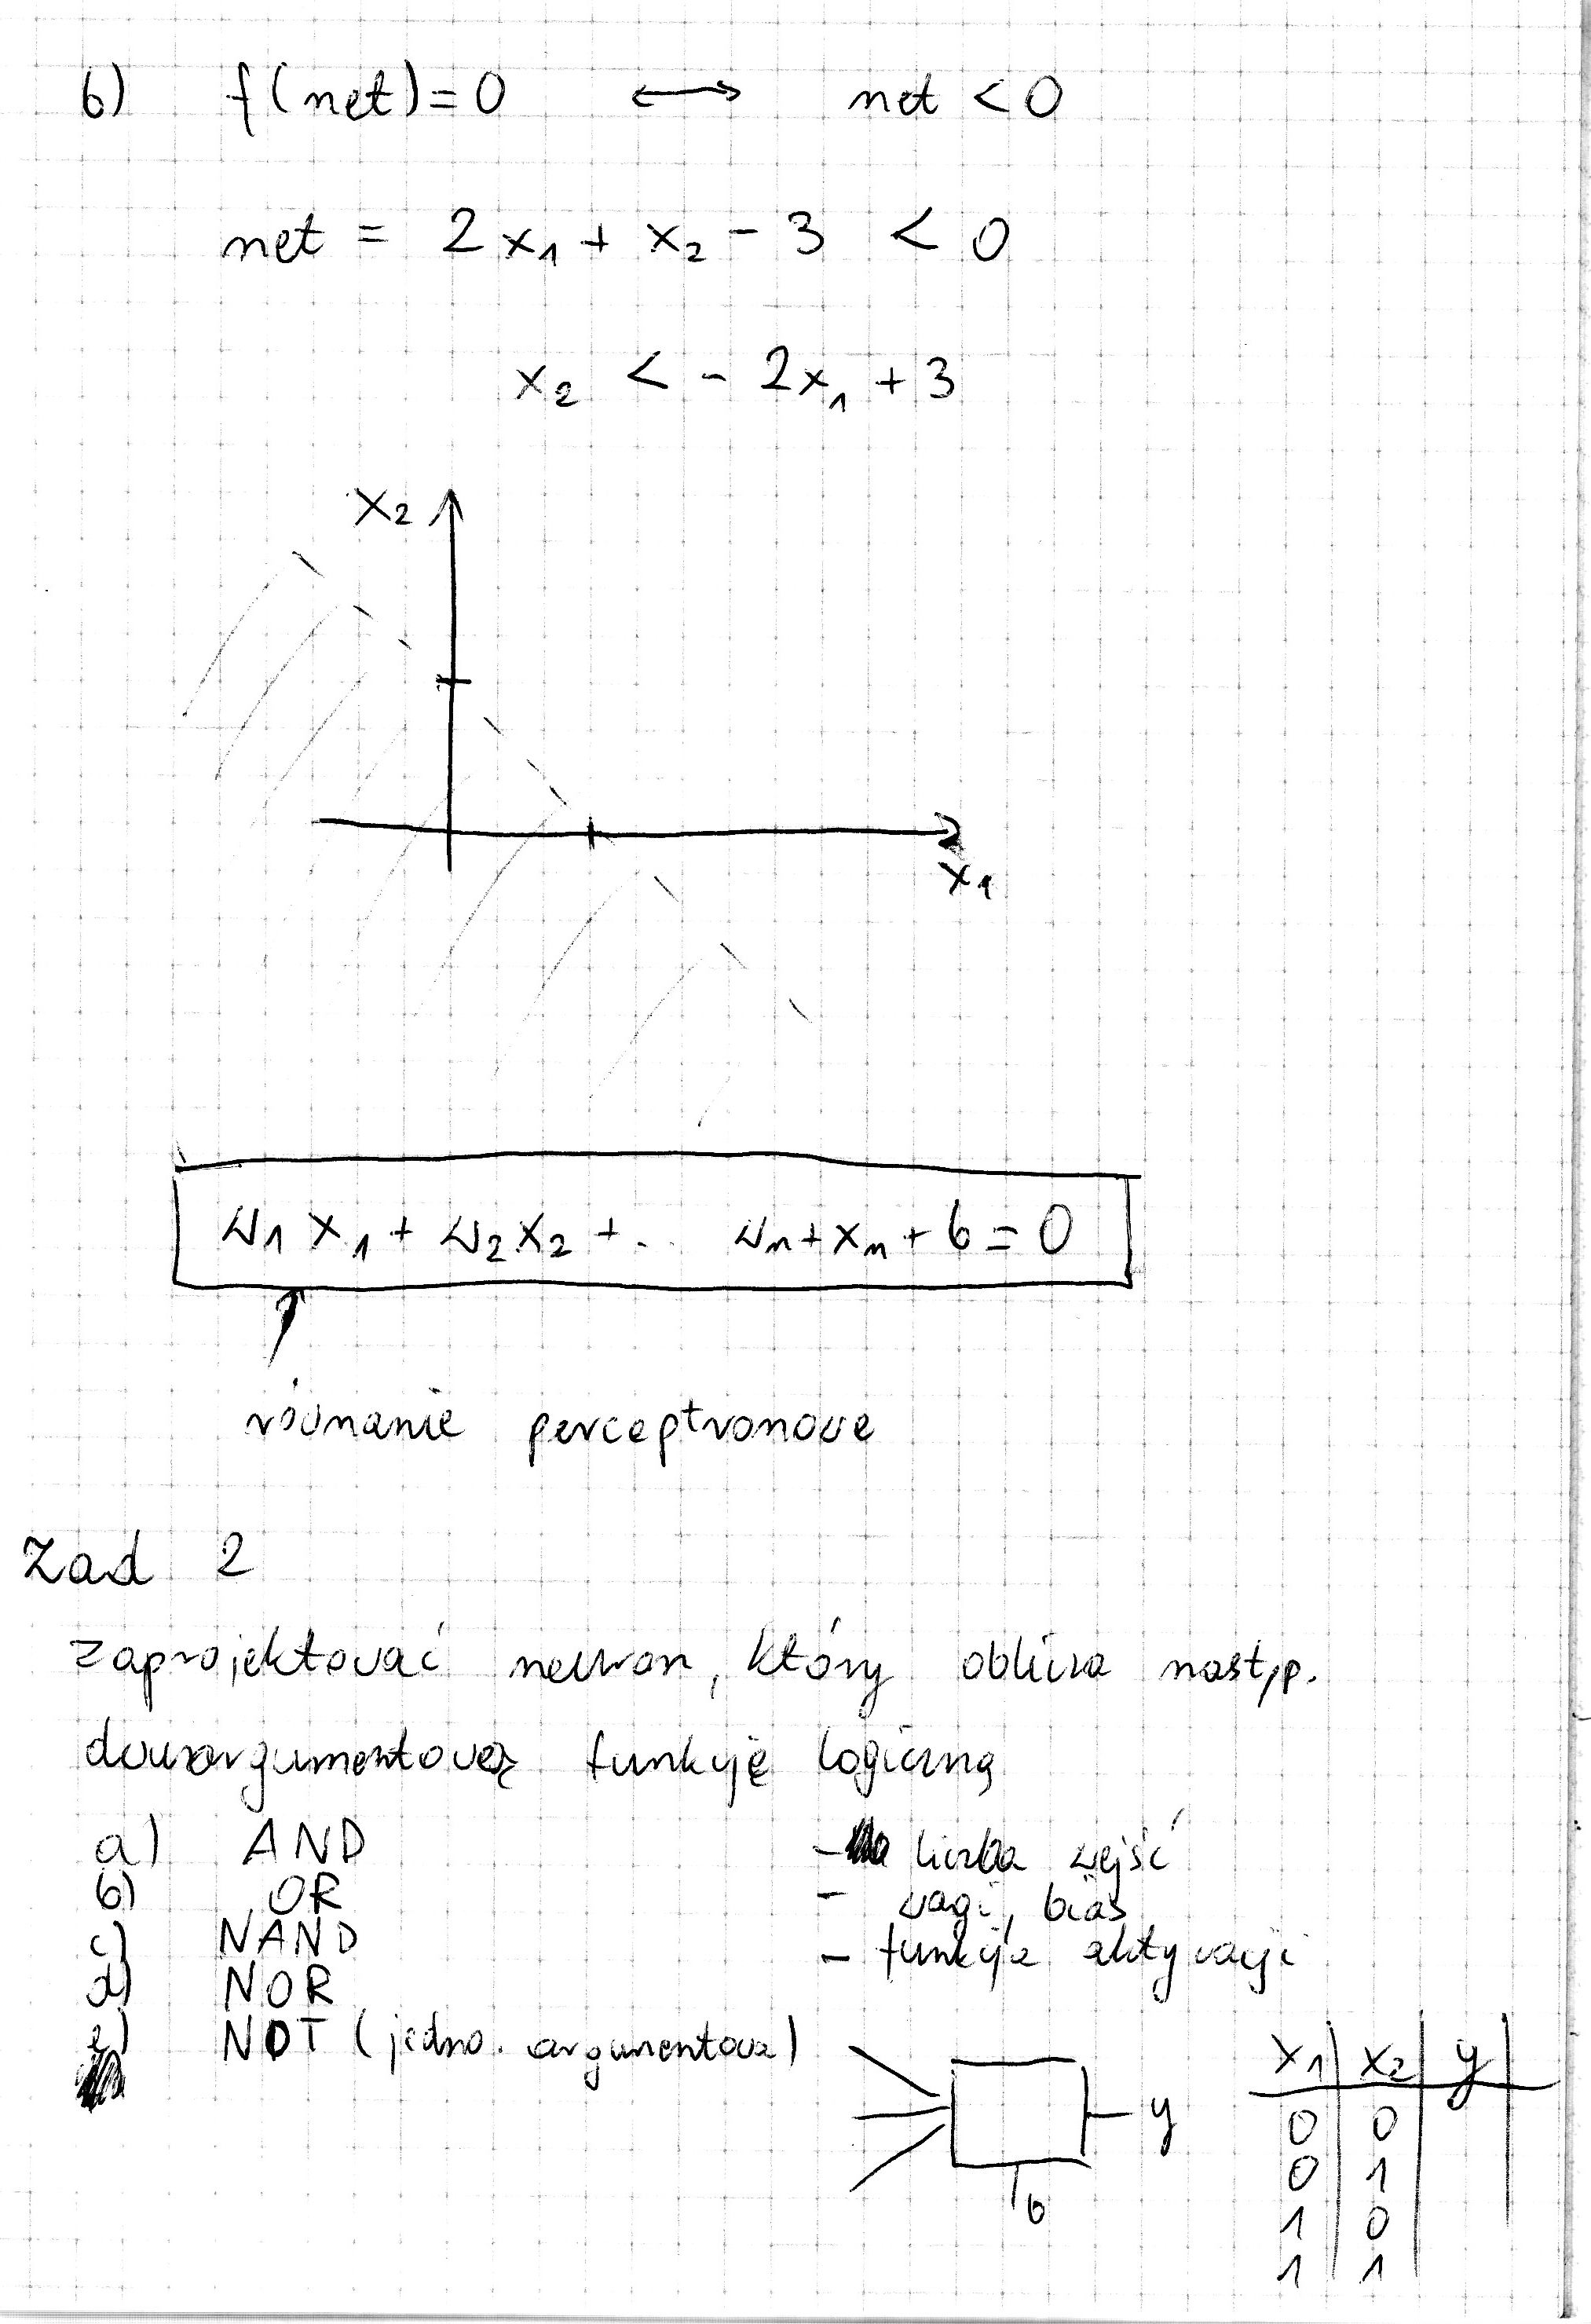 b) f(net)=0 ⟷ net <0
net = 2x₁ + x₂ - 3 < 0
x₂ < - 2x₁ + 3
x₂
x₁
w₁x₁ + w₂x₂ + .. wₙ+xₙ + b = 0
równanie perceptronowe
Zad 2
zaprojektować neuron, który oblicza następ.
dwuargumentową funkcję logiczną
a) AND
b) OR
c) NAND
d) NOR
e) NOT (jedno. argumentowa)
- liczba wejść
- wagi, bias
- funkcja aktywacji
y
b
x₁ x₂ y
0 0
0 1
1 0
1 1